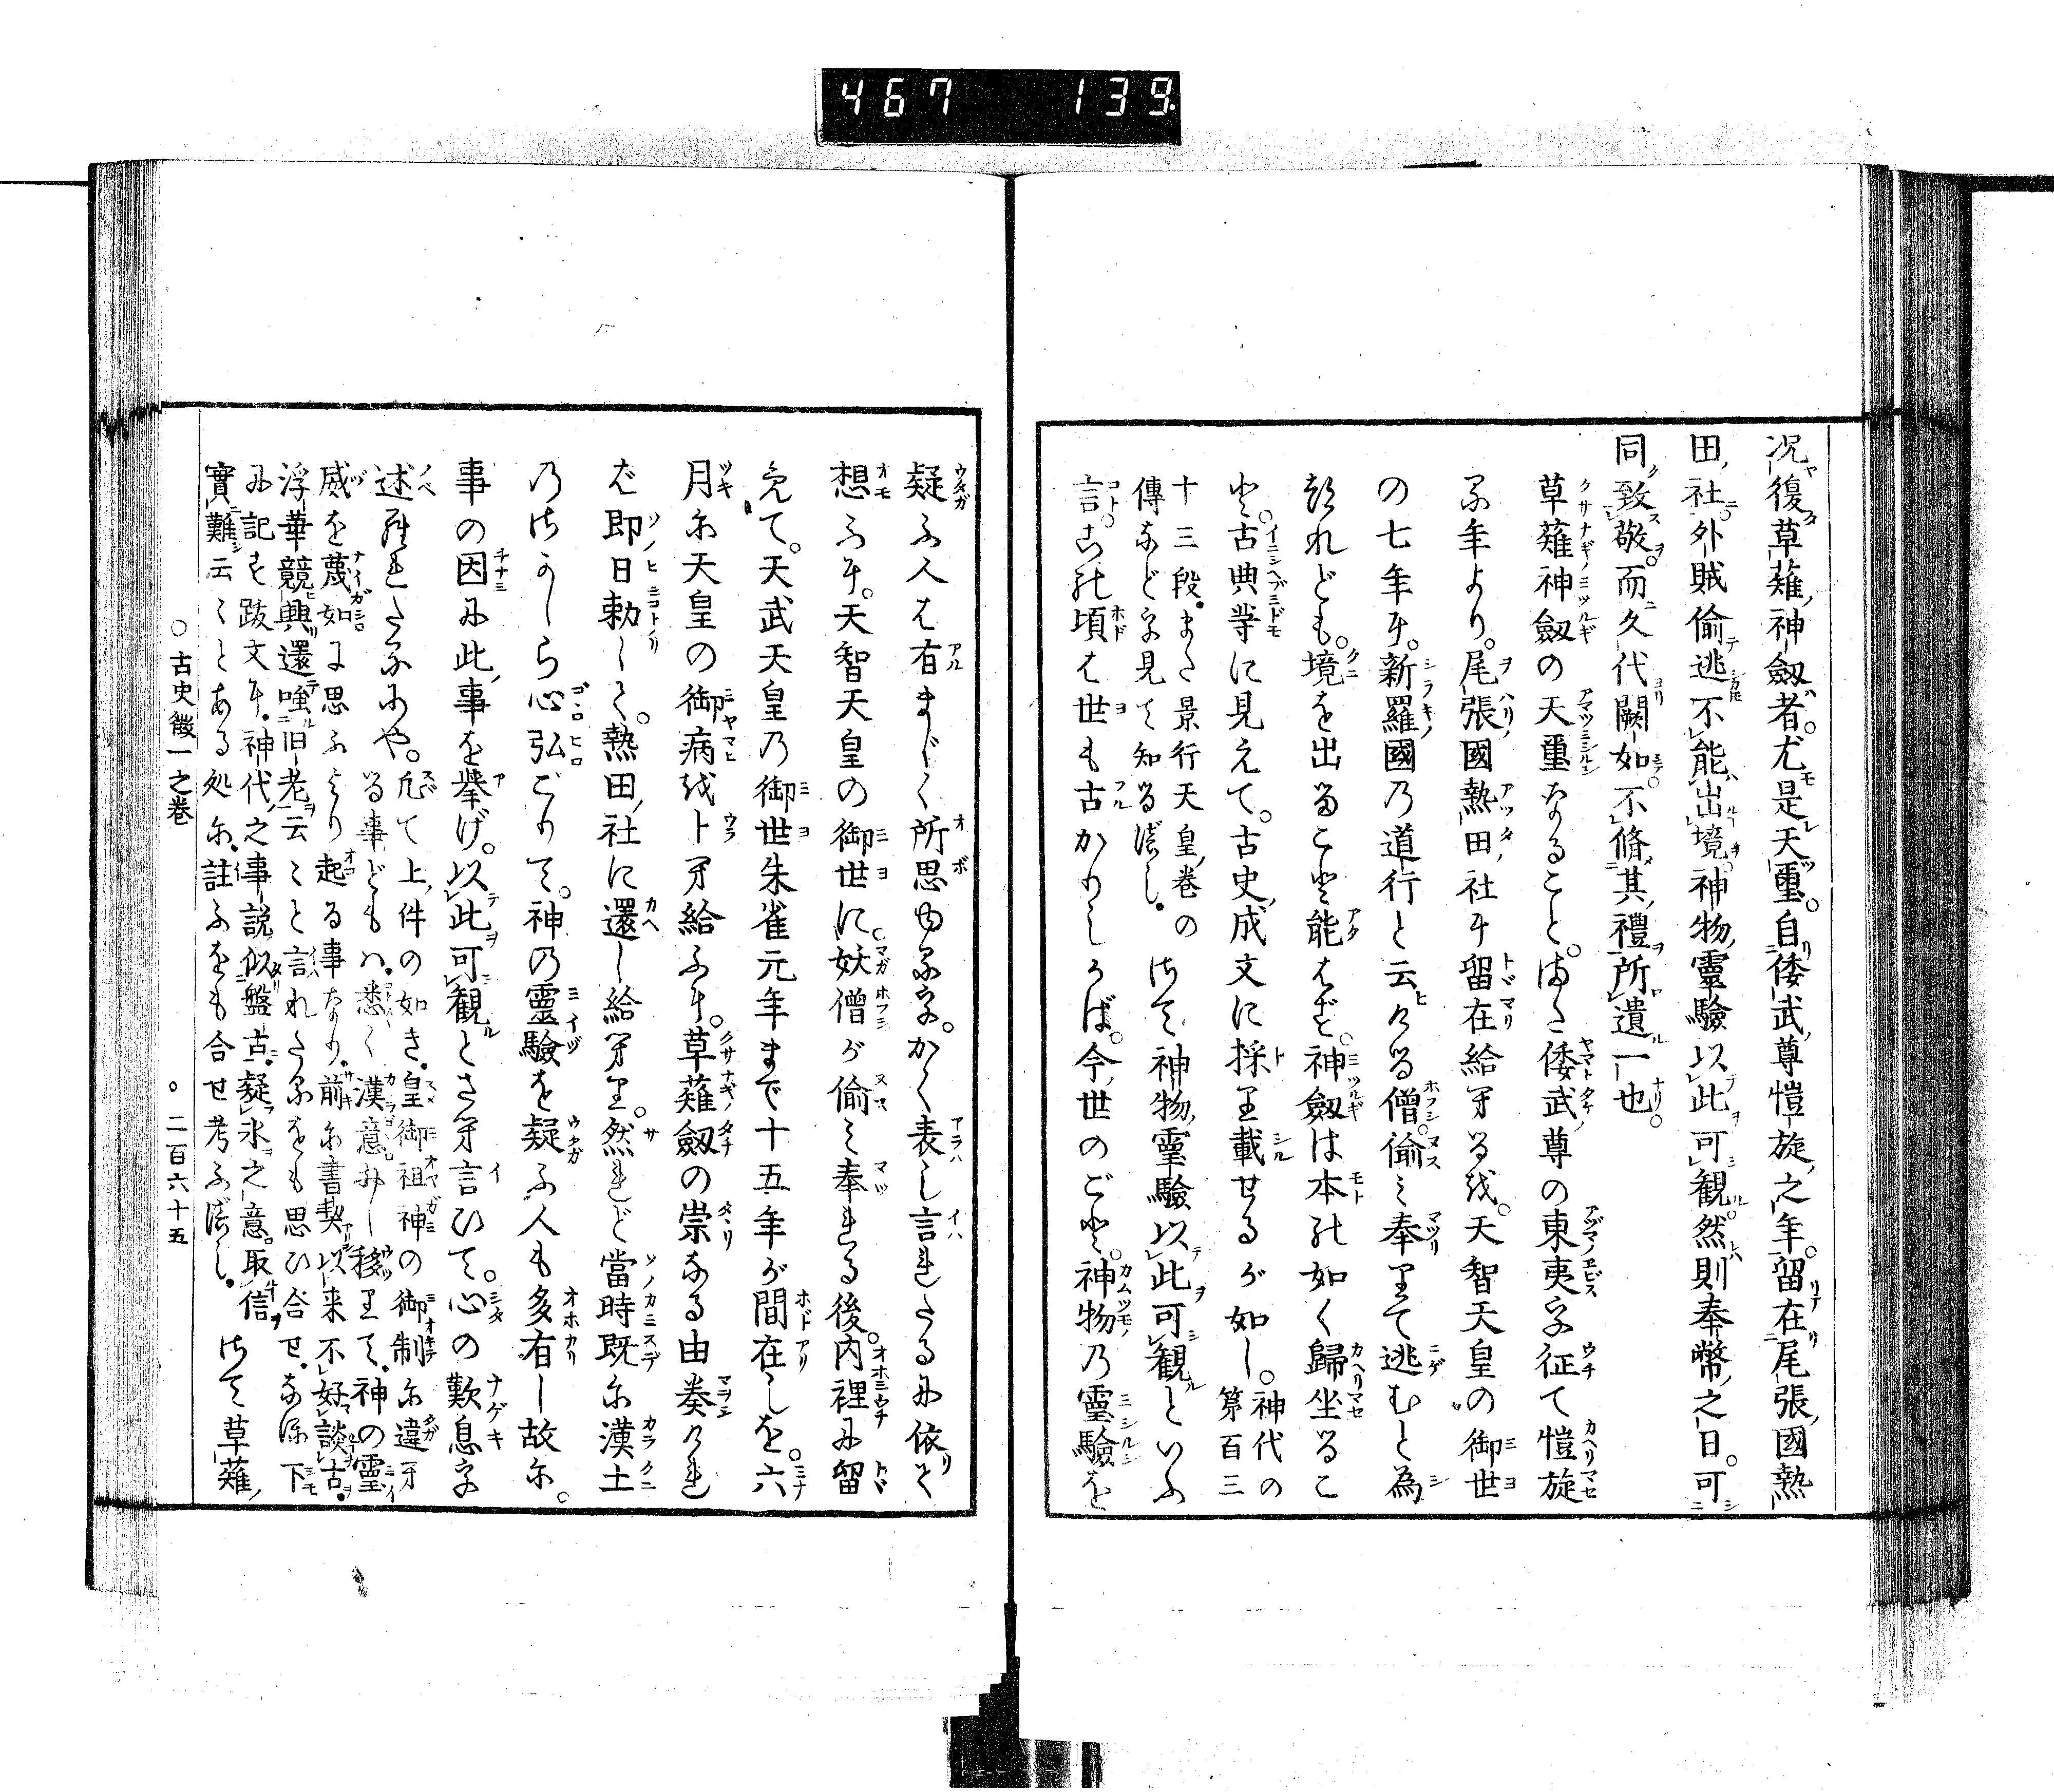 467 139
况復草薙神劔者。尤是天璽。自倭武尊愷旋之年。留在尾張國熱
田社。外賊偷逃不能出境。神物靈驗以此可観。然則奉幣之日。可
同致敬。而久代闕如。不脩其禮。所遺一也。
草薙神劔の天璽なること。また倭武尊の東夷を征て愷旋
る年より。尾張國熱田社に留在給へるを。天智天皇の御世
の七年に。新羅國の道行と云ける僧偷み奉りて逃むと為
れども。境を出ること能はず。神劔は本の如く歸坐るこ
と。古典等に見えて。古史成文に採り載せるが如し。神代の第百三
十三段。また景行天皇巻の
傳などを見て知るべし。さて神物靈驗以此可観といふ
言。その頃は世も古かりしかば。今世のごと。神物の靈驗を
疑ふ人は有まじく所思ゆるを。かく表し言れたるに依りて
想ふに。天智天皇の御世に。妖僧が偷み奉れる後。内裡に留
めて。天武天皇の御世朱雀元年まで十五年が間在しを。六
月に天皇の御病を卜へ給ふに。草薙劔の崇なる由奏ければ
即日勅して。熱田社に還し給へり。然れど當時既に漢土
のさかしら心弘ごりて。神の靈驗を疑ふ人も多有し故に。
事の因に此事を擧げ。以此可観とさへ言ひて。心の歎息を
述られたるにや。凡て上件の如き。皇御祖神の御制に違へ
る事どもハ。悉く漢意にし移りて。神の靈
威を蔑如に思ふより起る事なり。前に書契以来不好談古。
浮華競興還嗤旧老云々と言れたるをも思ひ合せ。なほ下
に記す跋文に。神代之事説似盤古。疑氷之意。取信
實難云々とある処に。註ふをも合せ考ふべし。さて草薙
○古史徴一之巻 ○二百六十五